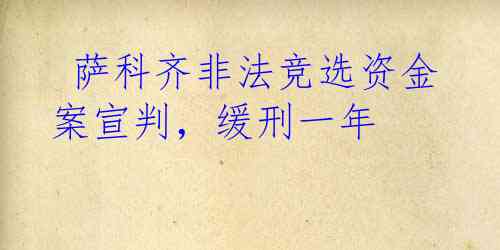 萨科齐非法竞选资金
案宣判，缓刑一年